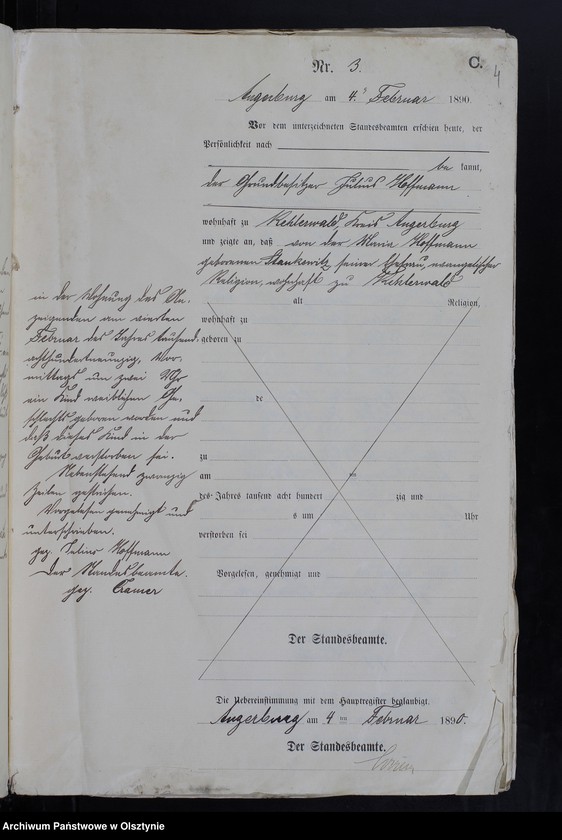 Nr. 3.
C.
4
Angerburg am 4. Februar 1890.
Vor dem unterzeichneten Standesbeamten erschien heute, der
Persönlichkeit nach
be kannt,
der Grundbesitzer Julius Hoffmann
wohnhaft zu Kehlerwald, Kreis Angerburg
und zeigte an, daß von der Maria Hoffmann
geborenen Stankowitz, seiner Ehefrau, evangelischer
Religion, wohnhaft zu Kehlerwald
alt Religion,
wohnhaft zu
geboren zu
de
zu
am ten
des Jahres tausend acht hundert zig und
s um Uhr
verstorben sei
Vorgelesen, genehmigt und
Der Standesbeamte.
in der Wohnung des An-
zeigenden am vierten
Februar des Jahres tausend
achthundertneunzig, Vor-
mittags um zwei Uhr
ein Kind weiblichen Ge-
schlechts geboren worden und
daß dieses Kind in der
Geburt verstorben sei.
Nebenstehend zwanzig
Zeilen gestrichen.
Vorgelesen genehmigt und
unterschrieben.
gez. Julius Hoffmann
Der Standesbeamte.
gez. Cramer
Die Uebereinstimmung mit dem Hauptregister beglaubigt.
Angerburg am 4 ten Februar 1890.
Der Standesbeamte.
Archiwum Państwowe w Olsztynie